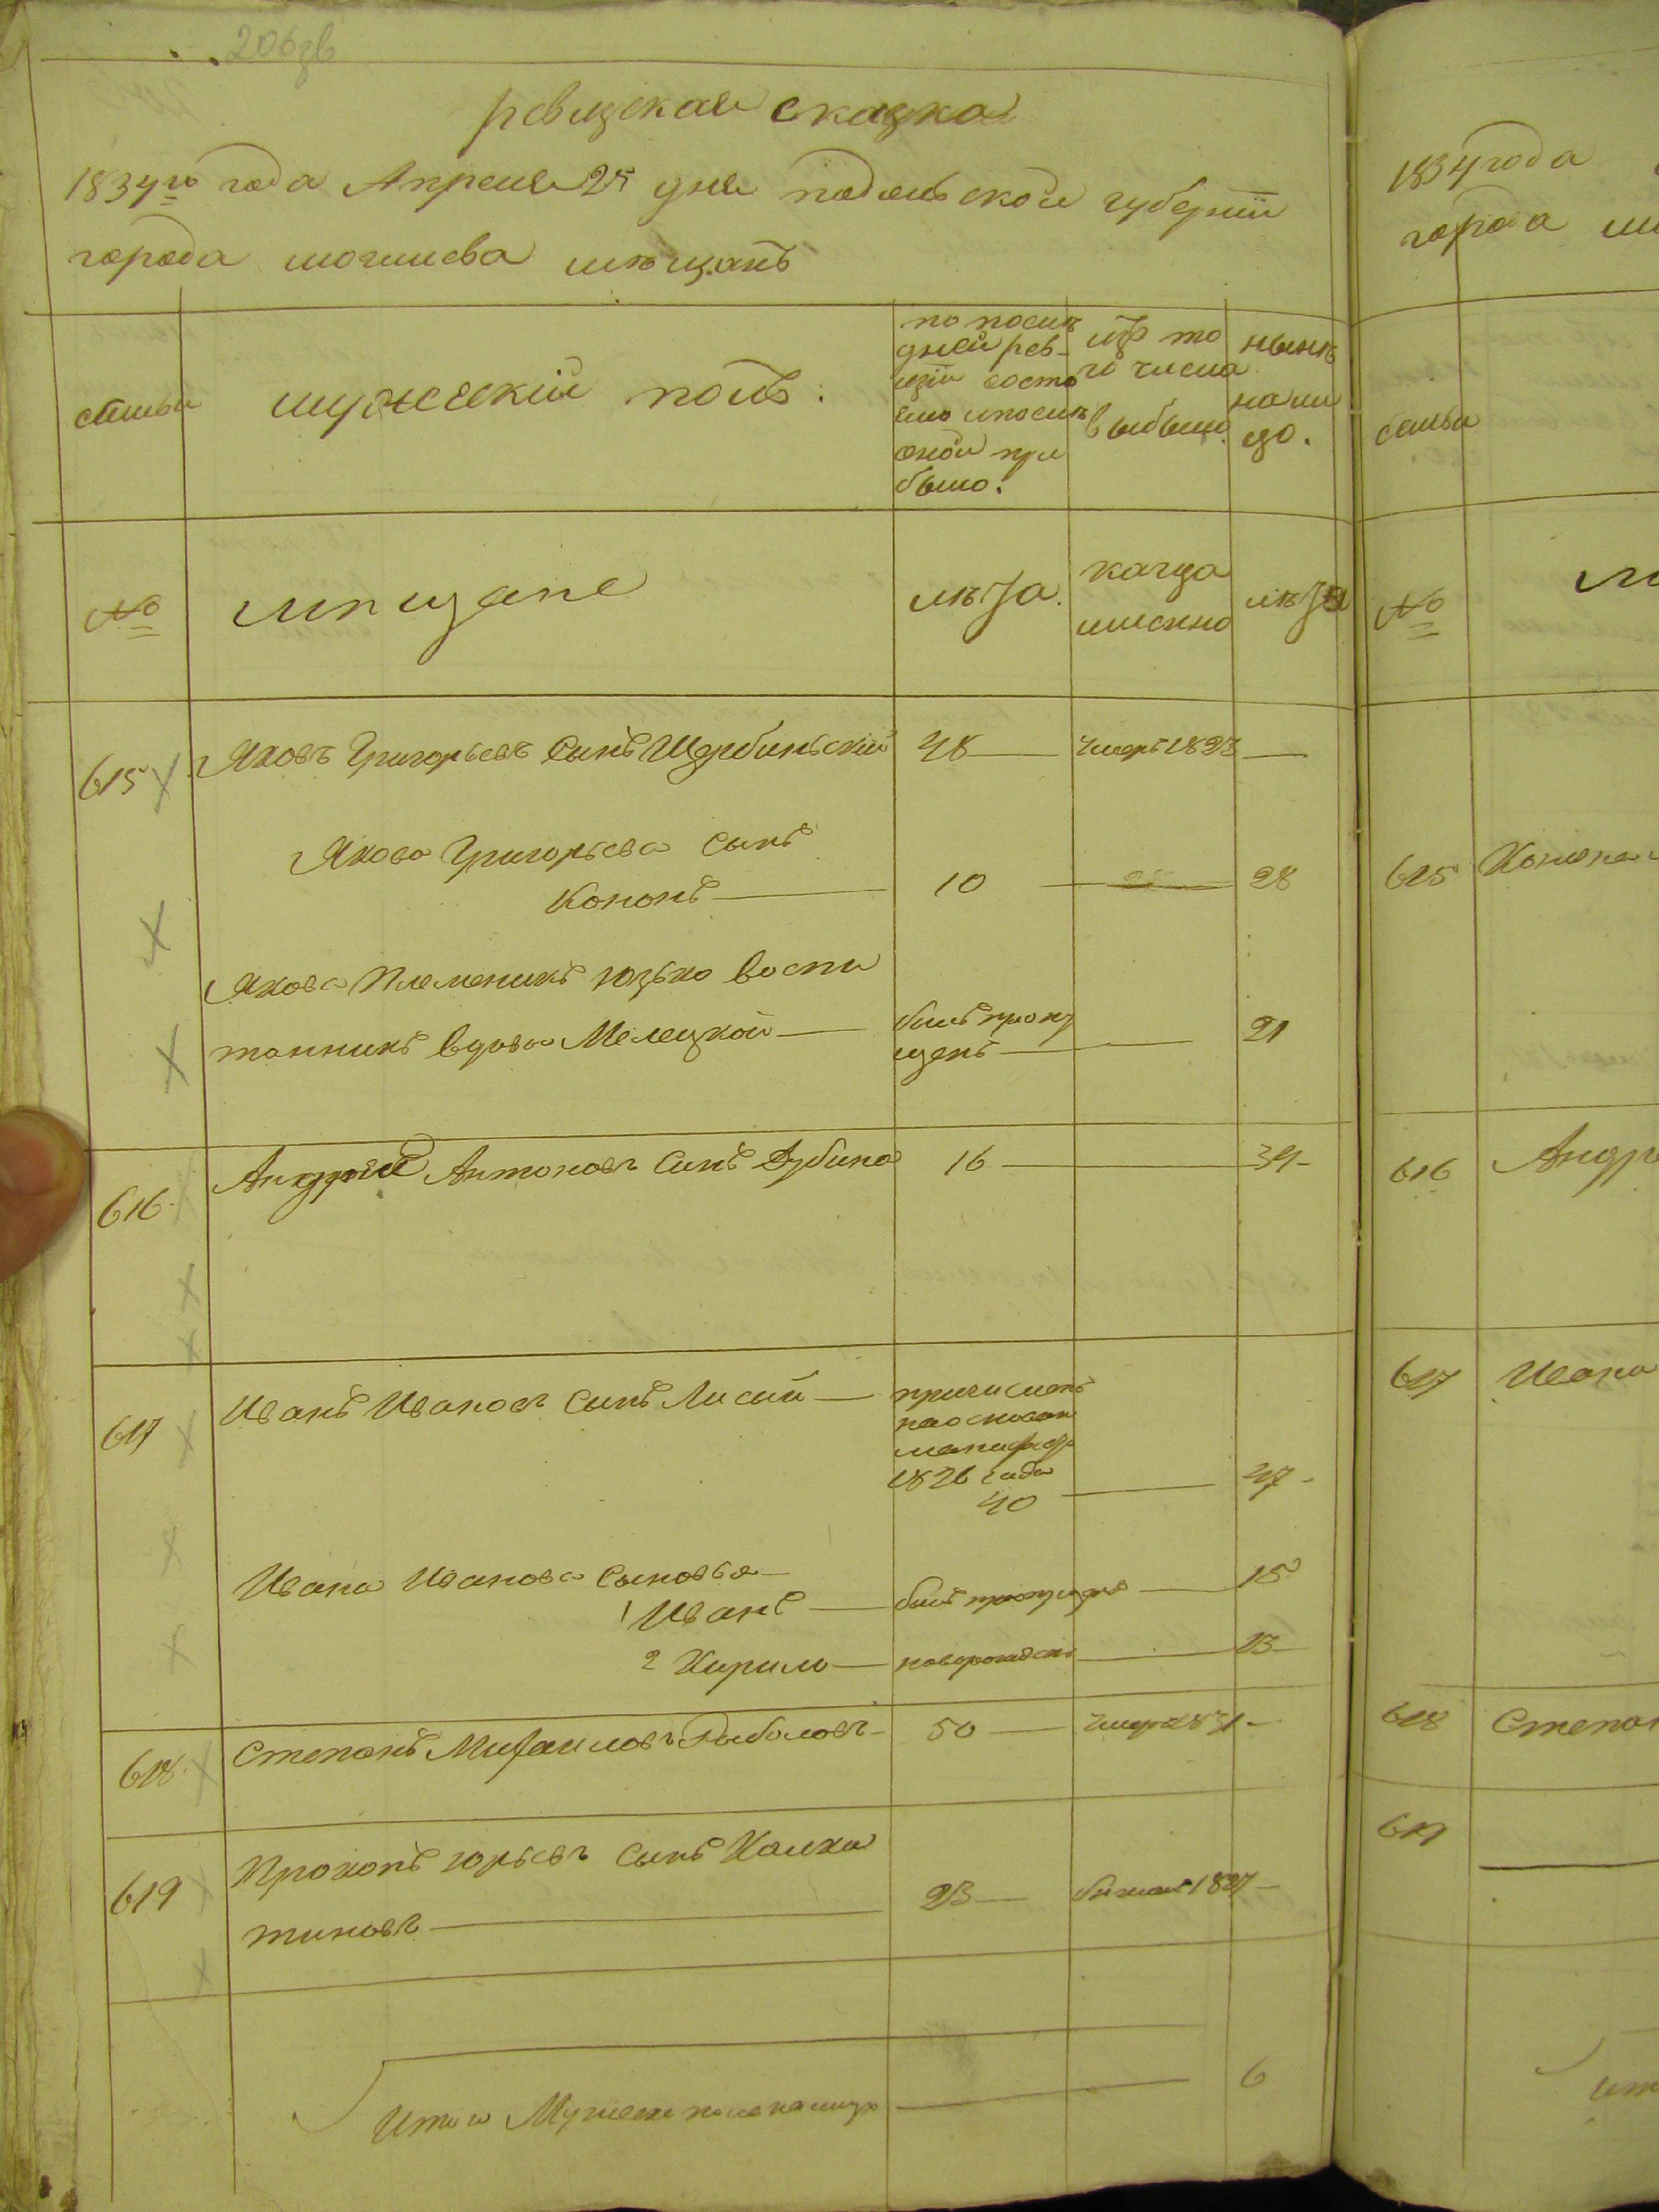 206зв
ревизская сказка
1834го года Апреля 25 дня подольской губернiи
города могилева мѣщанъ
семьи
мужескiй полъ.
по послѣ
дней рев-
изiи состо
яло и послѣ
оной при
было.
изъ то
го числа
выбыло.
нынѣ
на ли
цо.
№
мѣщане
лѣта.
когда
имянно
лѣта
615
Яковъ Григорьевъ Сынъ Щербинскiй
48
Умеръ 1823
Якова Григорьева Сынъ
Кононъ
10
28
Якова Племеникъ Юзько воспи
танникъ вдовы Мелецкой
былъ пропу
щенъ
21
616
Андрей Антоновъ Сынъ Дубина
16
34
617
Иванъ Ивановъ Сынъ Лисый
причисленъ
на основан
манифеста
1826 года
40
47
Ивана Иванова Сыновья
1 Иванъ
былъ пропущенъ
15
2 Кирило
новорожденъ
13
618
Степанъ Михаиловъ Рыболовъ
50
Умеръ 1831
619
Прокопъ Юрьевъ Сынъ Калка
тиновъ
23
бежалъ 1827
Итого Мужеска пола налицо
6
1834 года
города
семьи
№
615
616
Андр
617
Ивана
618
Степан
619